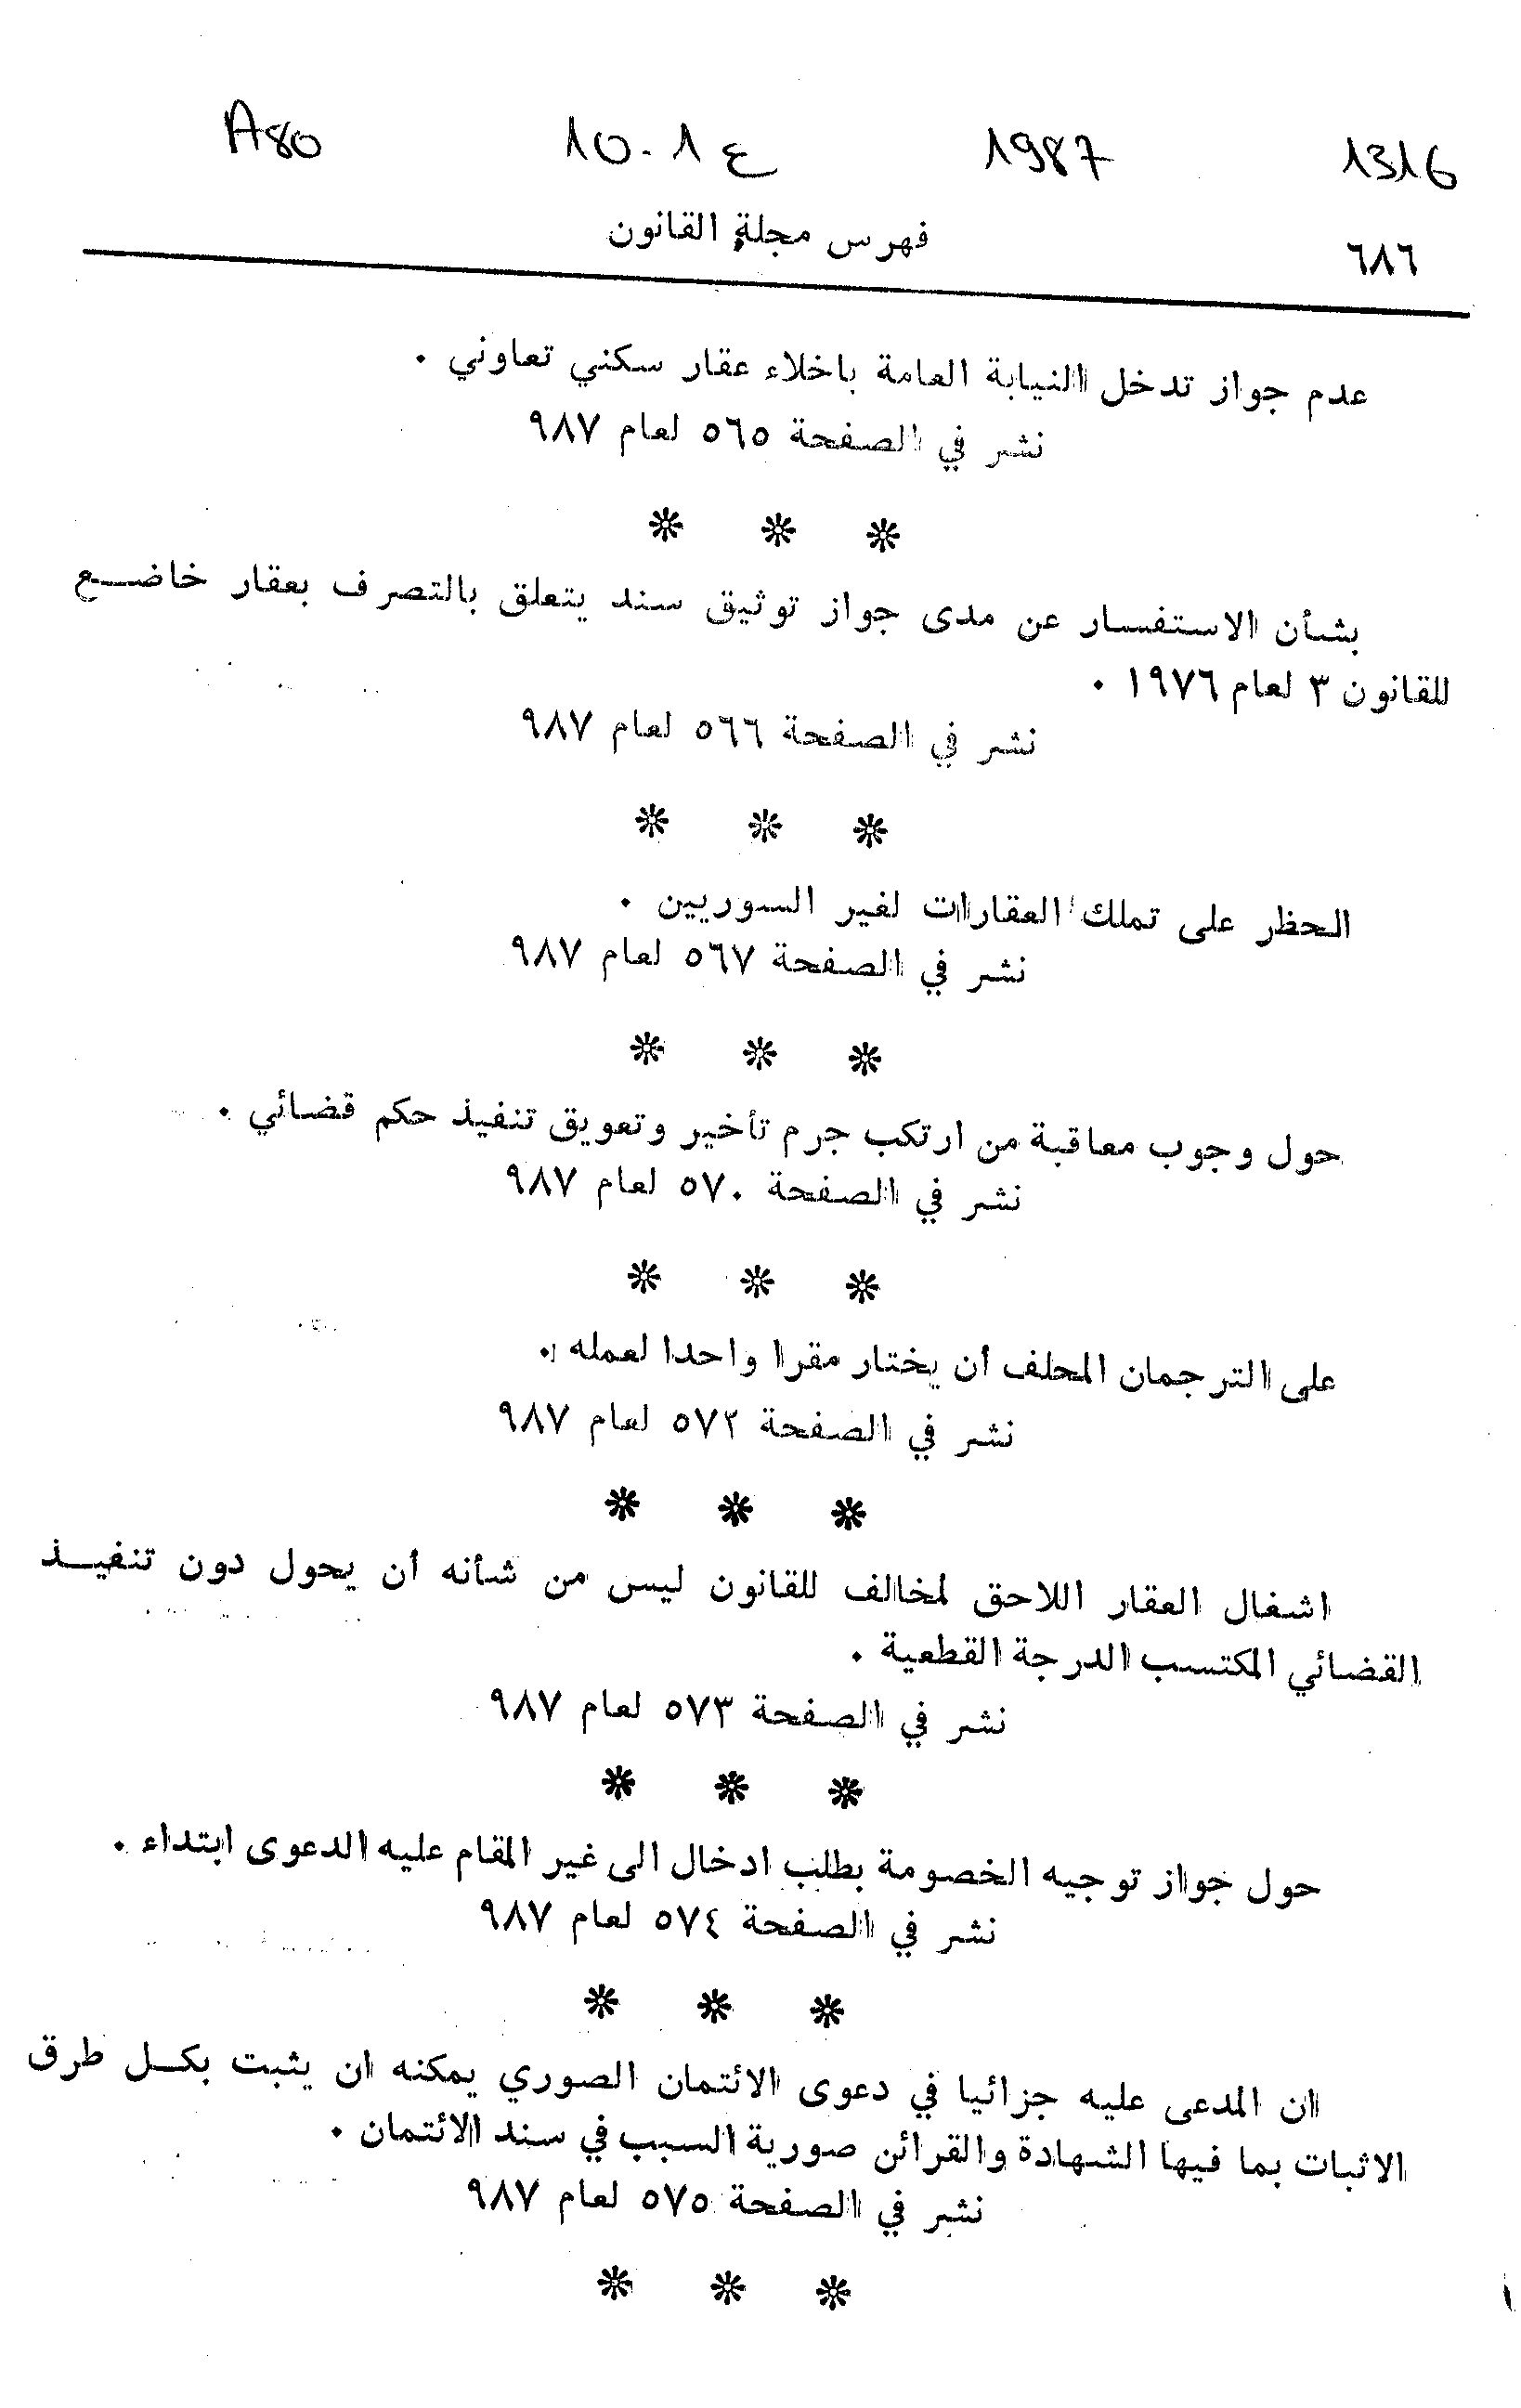 1316 1987 ع 1-10 A80
٦٨٦ فهرس مجلة القانون
عدم جواز تدخل النيابة العامة باخلاء عقار سكني تعاوني .
نشر في الصفحة ٥٦٥ لعام ٩٨٧
* * *
بشأن الاستفسار عن مدى جواز توثيق سند يتعلق بالتصرف بعقار خاضع
للقانون ٣ لعام ١٩٧٦ .
نشر في الصفحة ٥٦٦ لعام ٩٨٧
* * *
الحظر على تملك العقارات لغير السوريين .
نشر في الصفحة ٥٦٧ لعام ٩٨٧
* * *
حول وجوب معاقبة من ارتكب جرم تأخير وتعويق تنفيذ حكم قضائي .
نشر في الصفحة ٥٧٠ لعام ٩٨٧
* * *
على الترجمان المحلف أن يختار مقرا واحدا لعمله .
نشر في الصفحة ٥٧٢ لعام ٩٨٧
* * *
اشغال العقار اللاحق لمخالف للقانون ليس من شأنه أن يحول دون تنفيذ
القضائي المكتسب الدرجة القطعية .
نشر في الصفحة ٥٧٣ لعام ٩٨٧
* * *
حول جواز توجيه الخصومة بطلب ادخال الى غير المقام عليه الدعوى ابتداء .
نشر في الصفحة ٥٧٤ لعام ٩٨٧
* * *
ان المدعى عليه جزائيا في دعوى الائتمان الصوري يمكنه ان يثبت بكل طرق
الاثبات بما فيها الشهادة والقرائن صورية السبب في سند الائتمان .
نشر في الصفحة ٥٧٥ لعام ٩٨٧
* * *